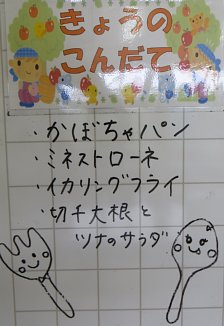 きょうの
こんだて
・かぼちゃパン
・ミネストローネ
・イカリングフライ
・切干大根と
ツナのサラダ